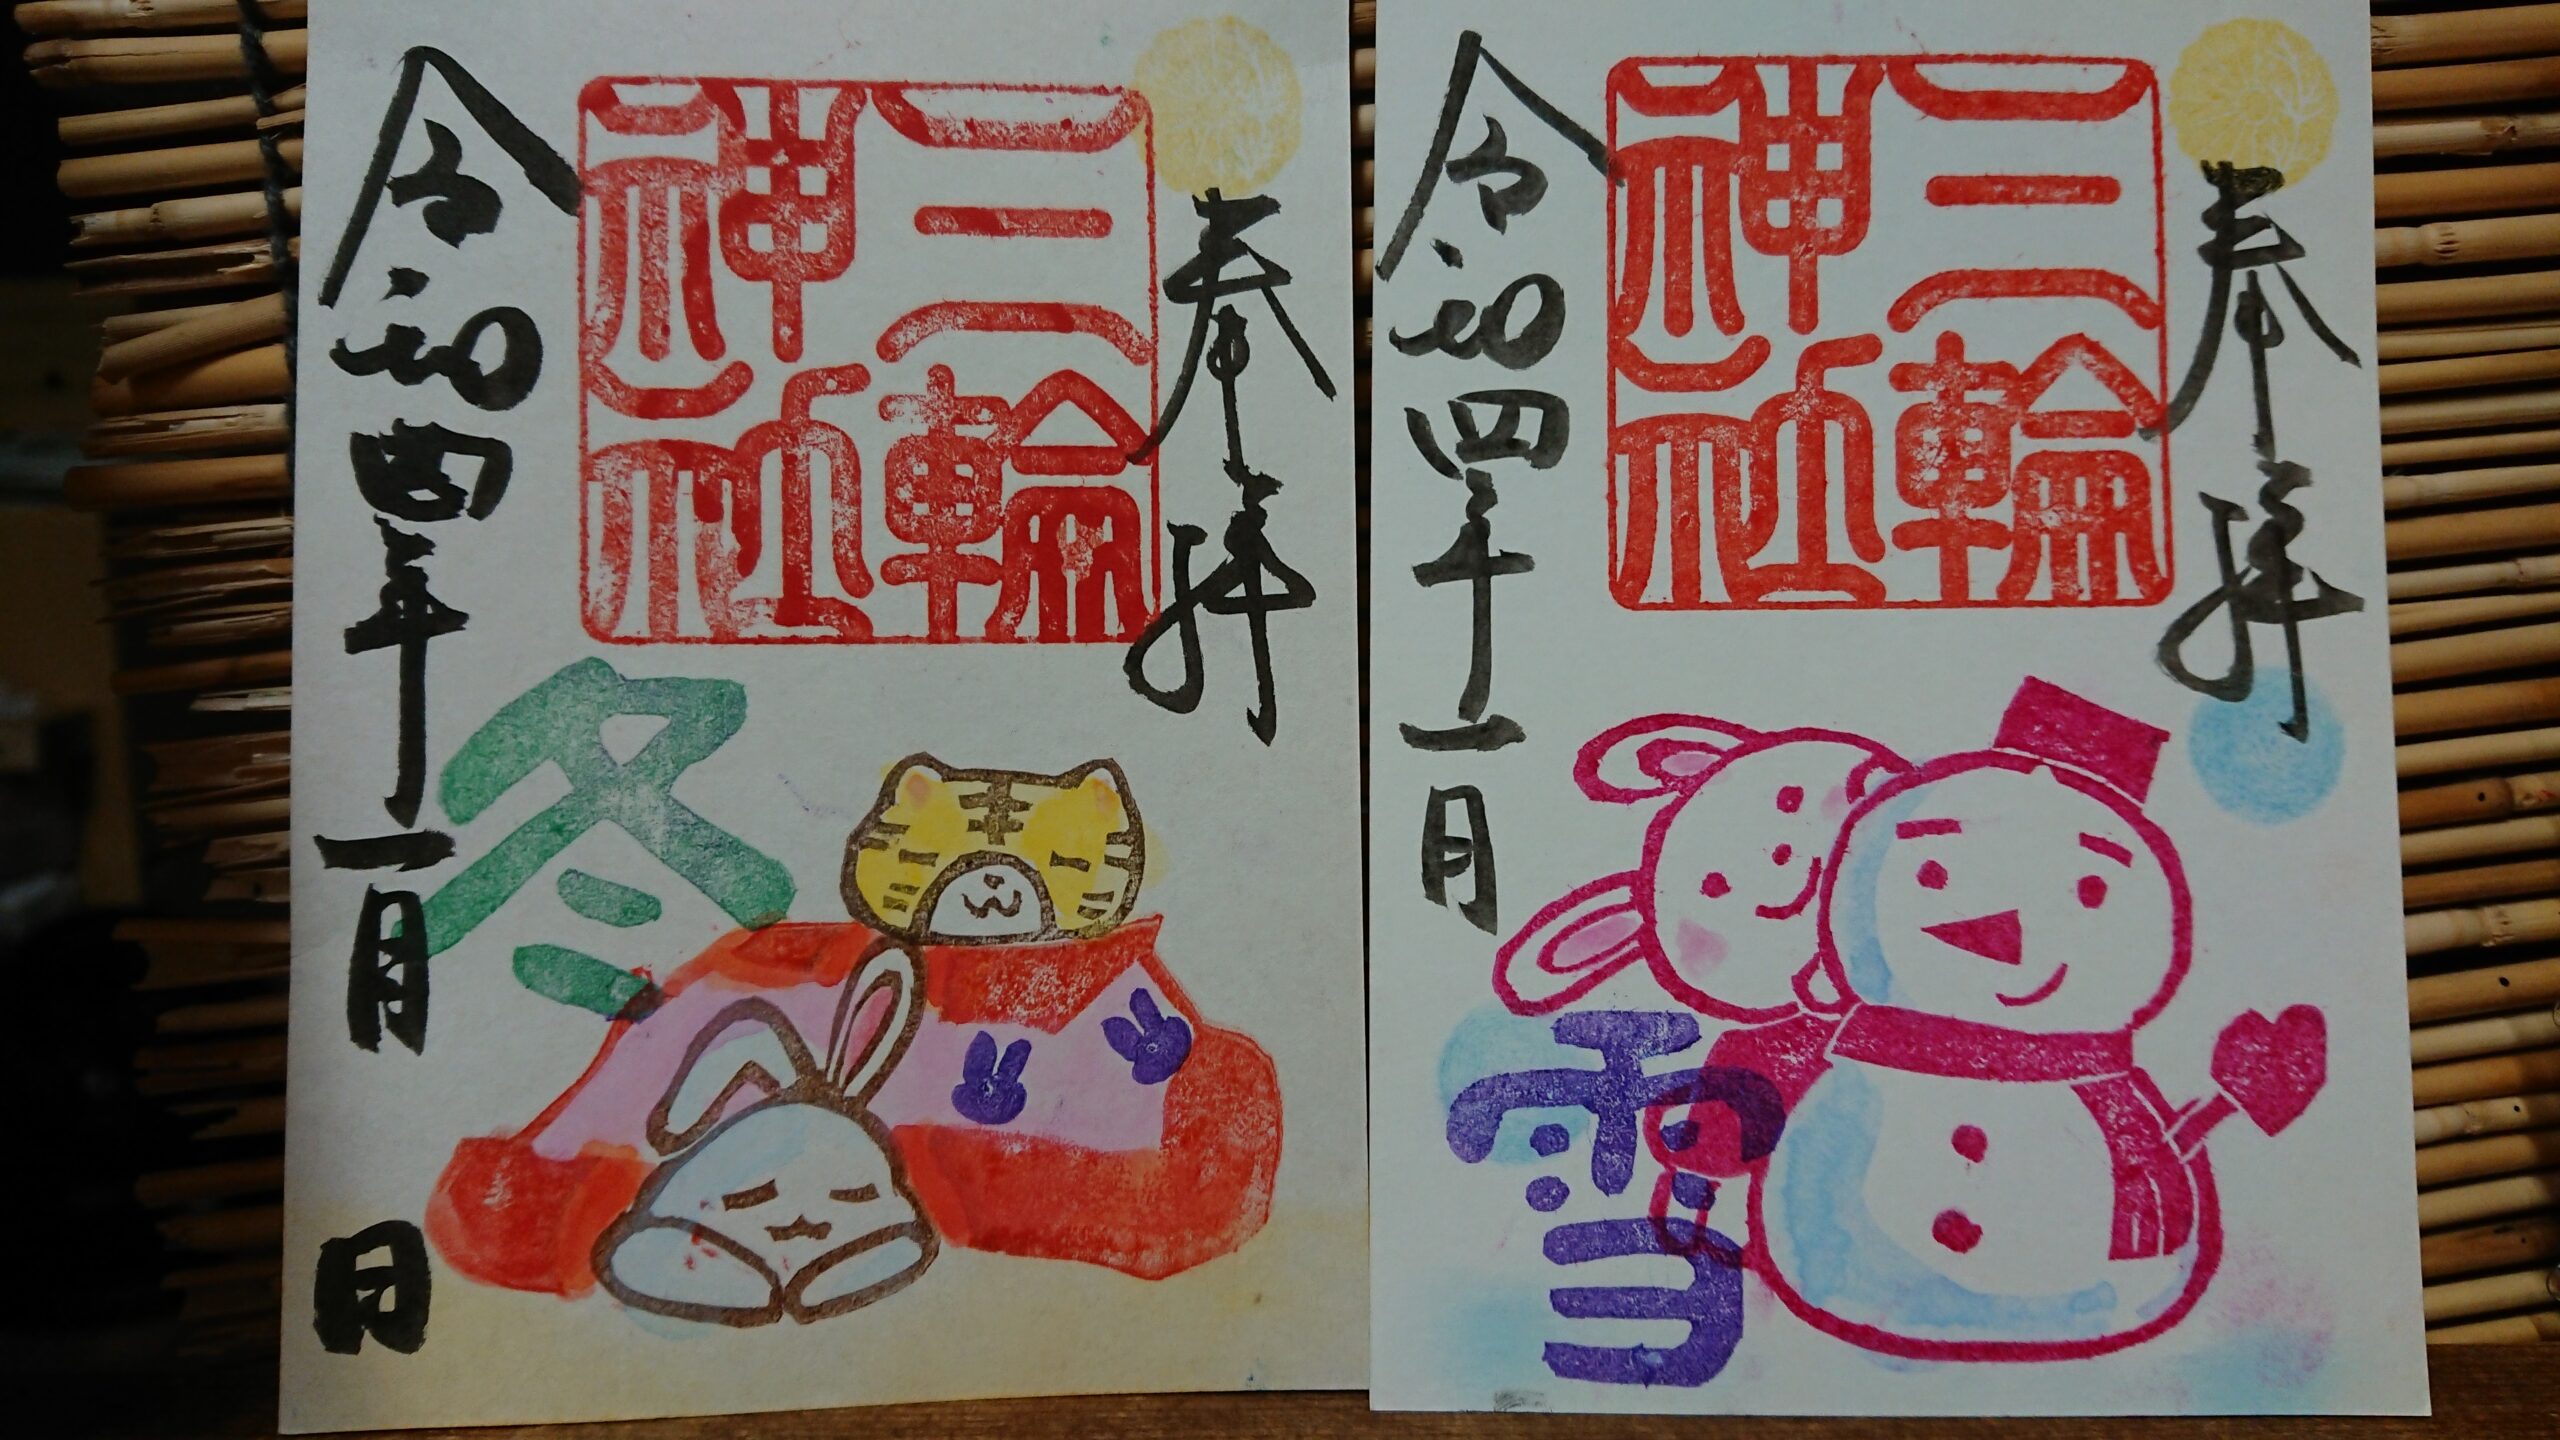 奉拝
三輪
神社
令和四年一月 日
冬
奉拝
三輪
神社
令和四年一月
雪